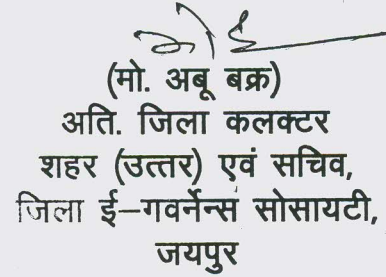 (मो. अबू बक्र)
अति. जिला कलक्टर
शहर (उत्तर) एवं सचिव,
जिला ई–गवर्नेन्स सोसायटी,
जयपुर